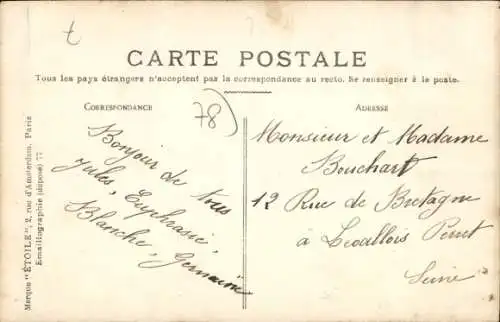 t
CARTE POSTALE
Tous les pays étrangers n'acceptent pas la correspondance au recto. Se renseigner à la poste.
CORRESPONDANCE
78
ADRESSE
Bonjour de tous
Jules, Euphrasie,
Blanche, Germaine
Monsieur et Madame
Bouchart
12 Rue de Bretagne
à Levallois Perret
Seine
Marque "ÉTOILE", 2, rue d'Amsterdam, Paris
Emaillographie (déposé) 77